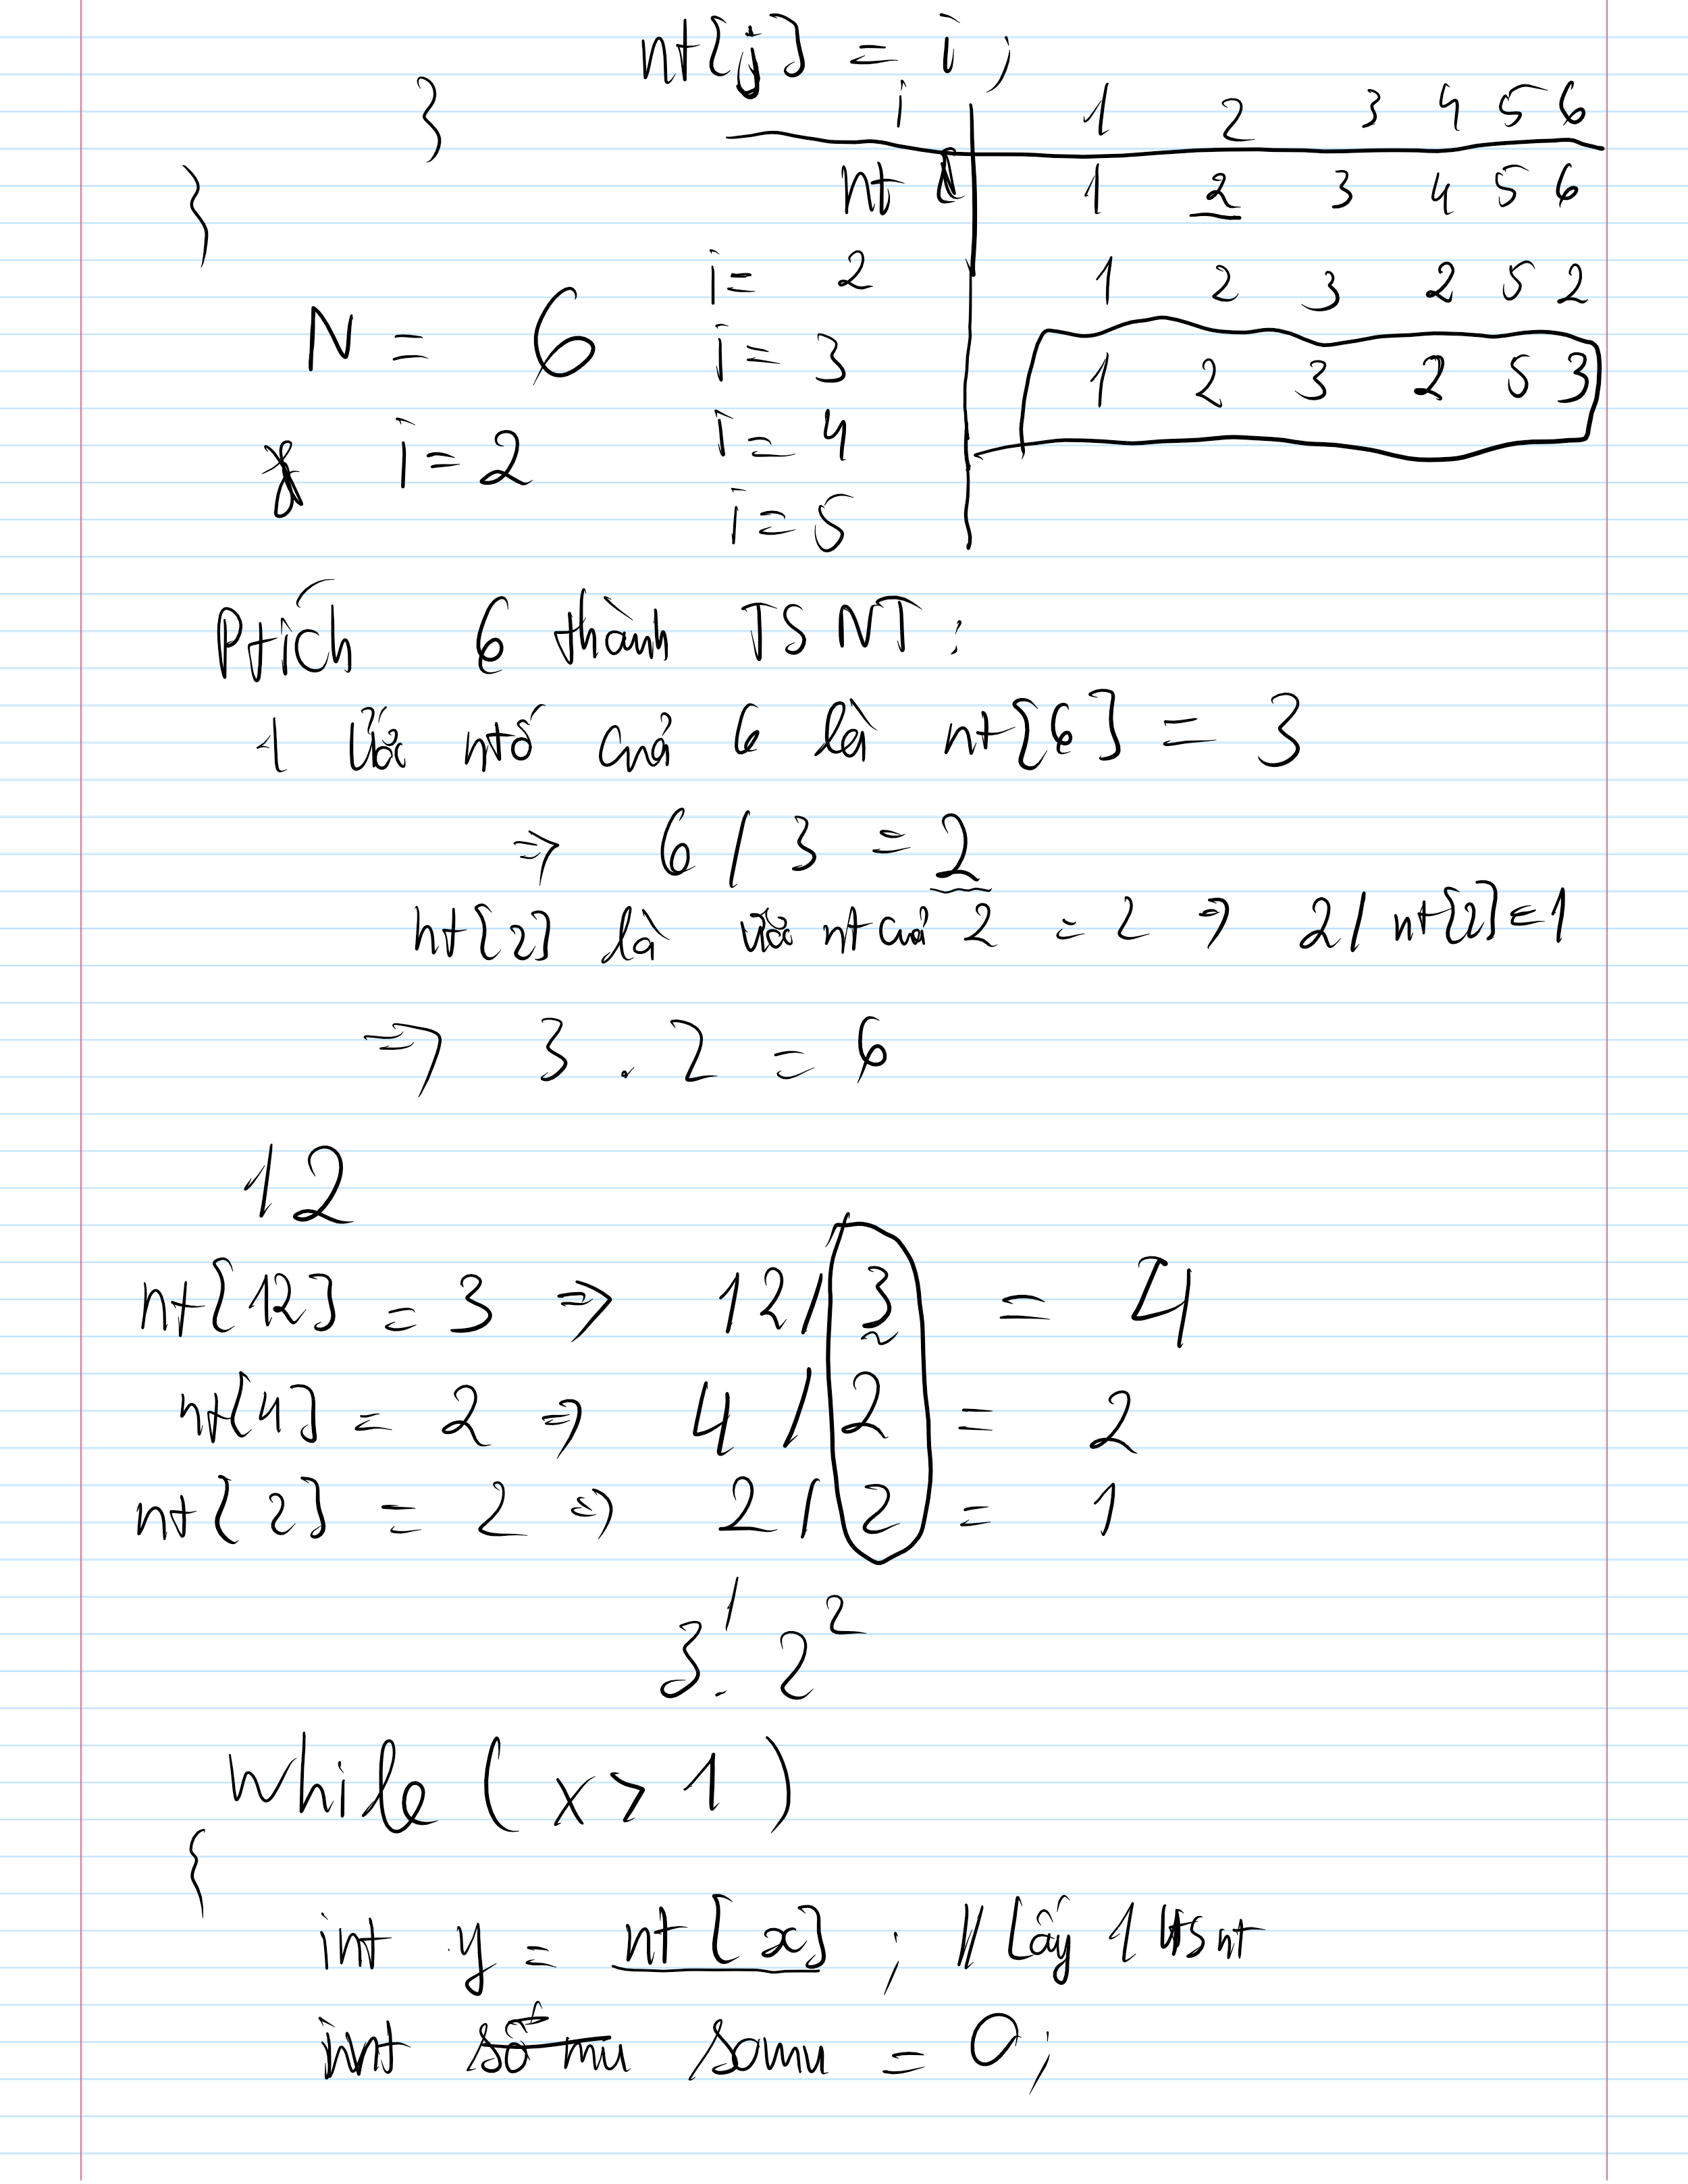 nt[j] = i ;
}
i 1 2 3 4 5 6
nt 1 2 3 4 5 6
}
i = 2 1 2 3 2 5 2
N = 6
i = 3 1 2 3 2 5 3
i = 2
i = 4
i = 5
Ptích 6 thành TSNT :
1 ước ntố của 6 là nt[6] = 3
⇒ 6 / 3 = 2
nt[2] là ước nt của 2 = 2 ⇒ 2 / nt[2] = 1
⇒ 3 . 2 = 6
12
nt[12] = 3 ⇒ 12 / 3 = 4
nt[4] = 2 ⇒ 4 / 2 = 2
nt[2] = 2 ⇒ 2 / 2 = 1
3¹ . 2²
while ( x > 1 )
{
int y = nt[x] ; // Lấy 1 tsnt
int số mũ somu = 0;